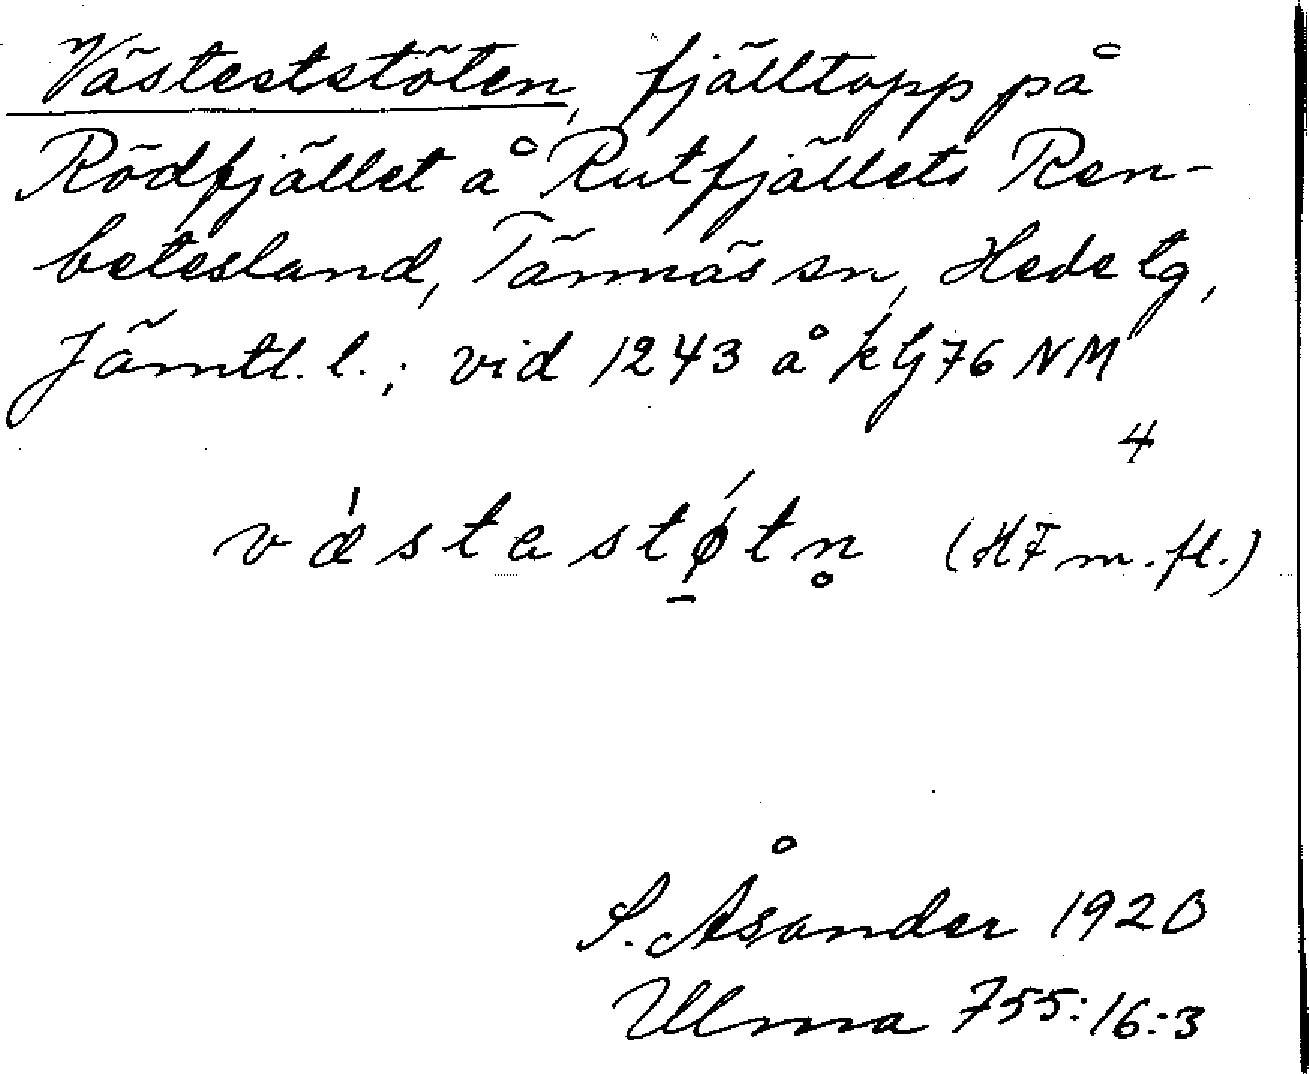 Västeststöten, fjälltopp på
Rödfjället å Rutfjällets Ren-
betesland, Tännäs sn, Hede tg,
Jämtl. l.; vid 1243 å kbj 76 NM
4
væ̀stastǿ̱tn̥ (HF m.fl.)
S. Åsander 1920
Ulma 755:16:3